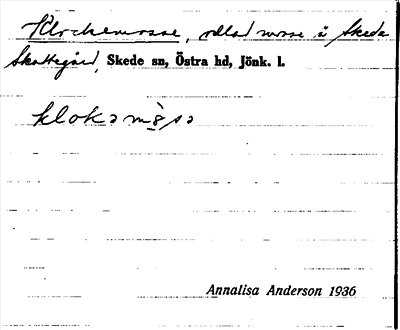 Klockemosse, odlad mosse i Skeda
Skattegård, Skede sn, Östra hd, Jönk. l.
klokəmòsə
Annalisa Anderson 1936